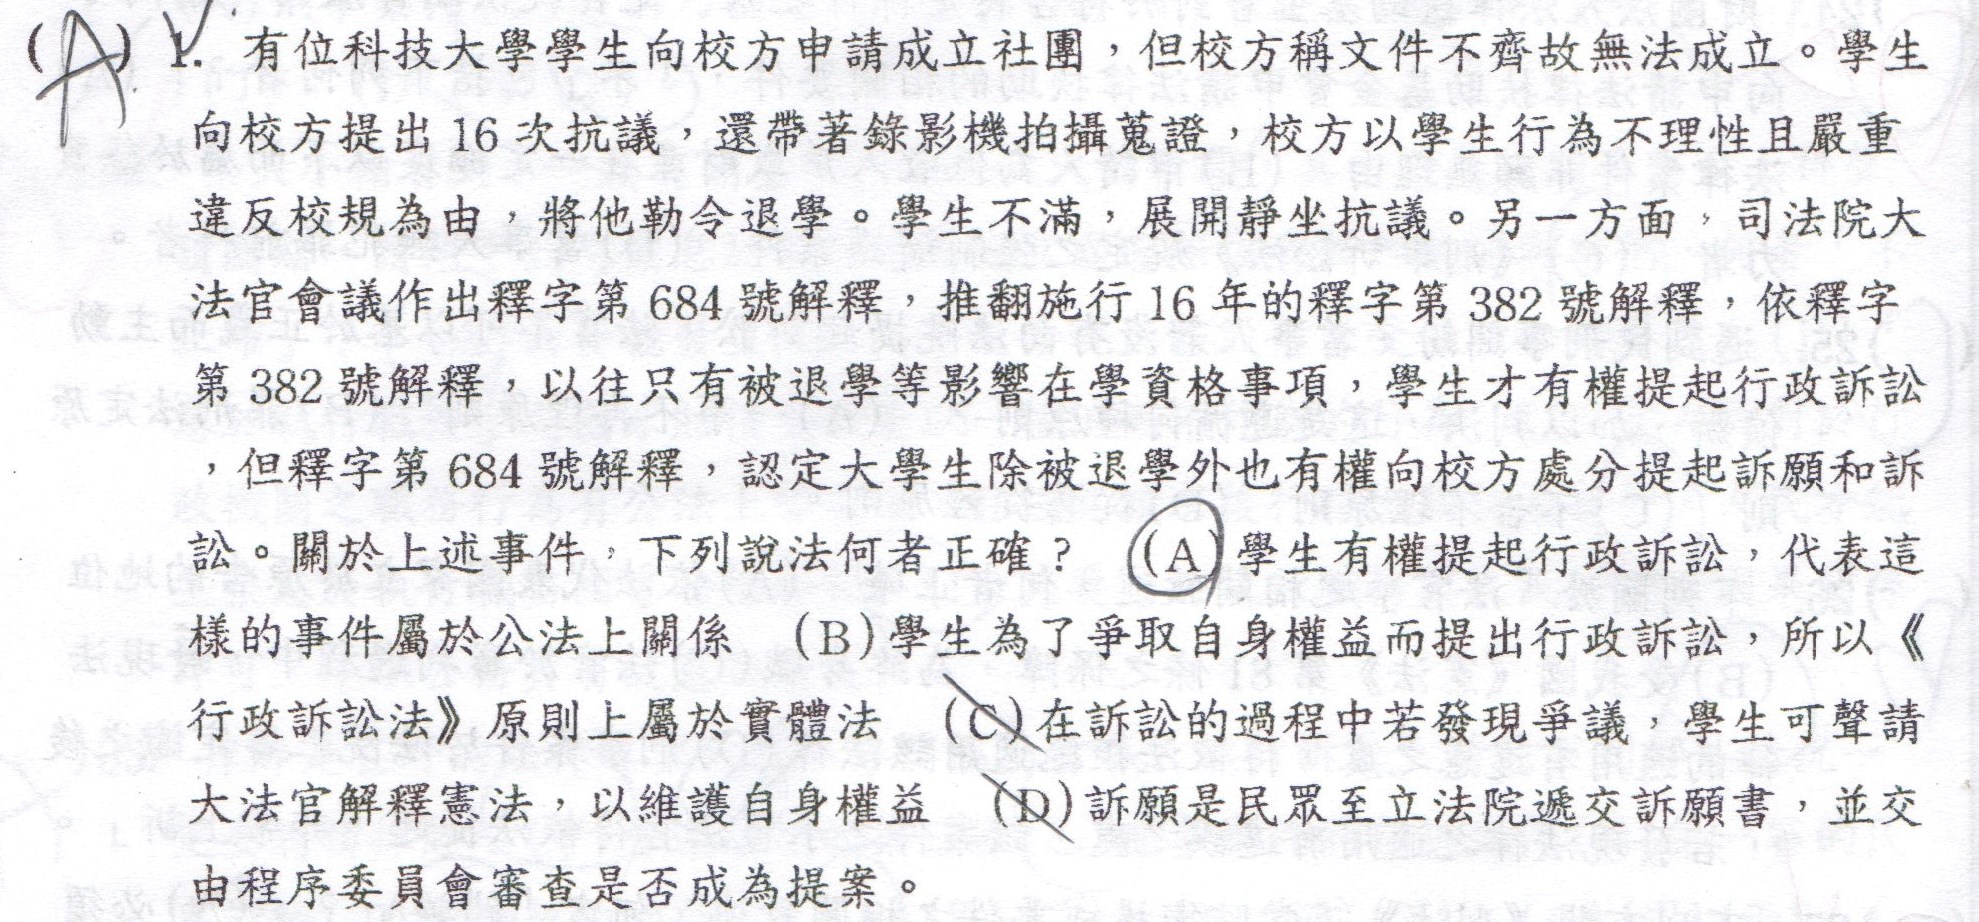 (A) 1. 有位科技大學學生向校方申請成立社團，但校方稱文件不齊故無法成立。學生
向校方提出 16 次抗議，還帶著錄影機拍攝蒐證，校方以學生行為不理性且嚴重
違反校規為由，將他勒令退學。學生不滿，展開靜坐抗議。另一方面，司法院大
法官會議作出釋字第 684 號解釋，推翻施行 16 年的釋字第 382 號解釋，依釋字
第 382 號解釋，以往只有被退學等影響在學資格事項，學生才有權提起行政訴訟
，但釋字第 684 號解釋，認定大學生除被退學外也有權向校方處分提起訴願和訴
訟。關於上述事件，下列說法何者正確？ (A)學生有權提起行政訴訟，代表這
樣的事件屬於公法上關係 (B)學生為了爭取自身權益而提出行政訴訟，所以《
行政訴訟法》原則上屬於實體法 (C)在訴訟的過程中若發現爭議，學生可聲請
大法官解釋憲法，以維護自身權益 (D)訴願是民眾至立法院遞交訴願書，並交
由程序委員會審查是否成為提案。